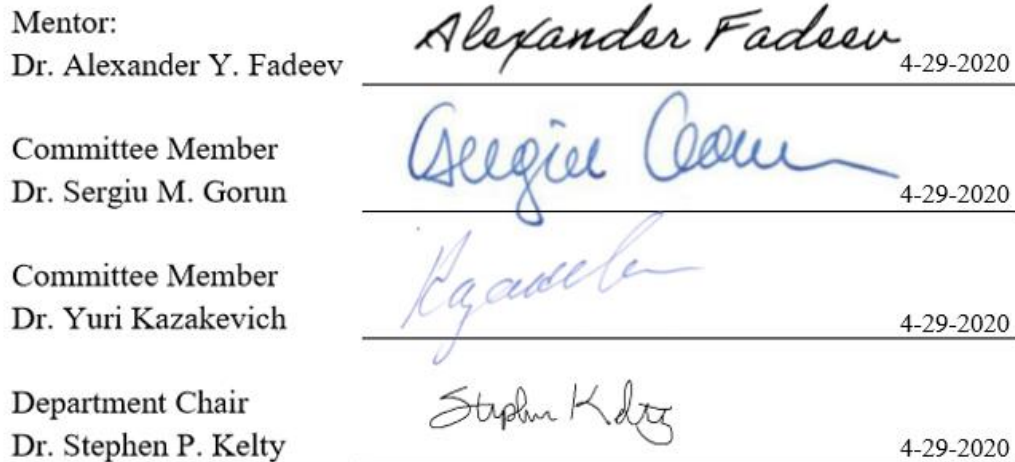 Mentor:
Alexander Fadeev
Dr. Alexander Y. Fadeev 4-29-2020
Committee Member
Sergiu Gorun
Dr. Sergiu M. Gorun 4-29-2020
Committee Member
Kazakevich
Dr. Yuri Kazakevich 4-29-2020
Department Chair
Stephen Kelty
Dr. Stephen P. Kelty 4-29-2020